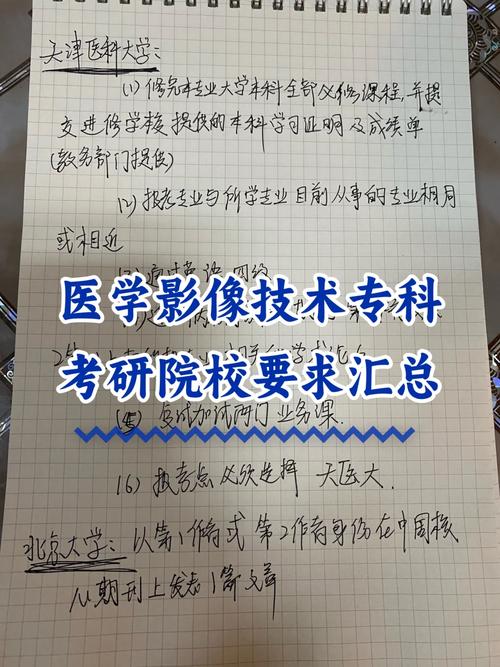 天津医科大学:
(1) 修完本专业大学本科全部必修课程,并提
交进修学校提供的本科学习证明及成绩单
(教务部门提供)
(2) 报考专业与所学专业目前从事的专业相同
或相近
英语四级
医学影像技术专科
考研院校要求汇总
(5) 复试加试两门业务课.
(6) 报考点必须选择 天医大.
北京大学: 以第1作者或 第2作者身份在中国核
心期刊上发表1篇文章